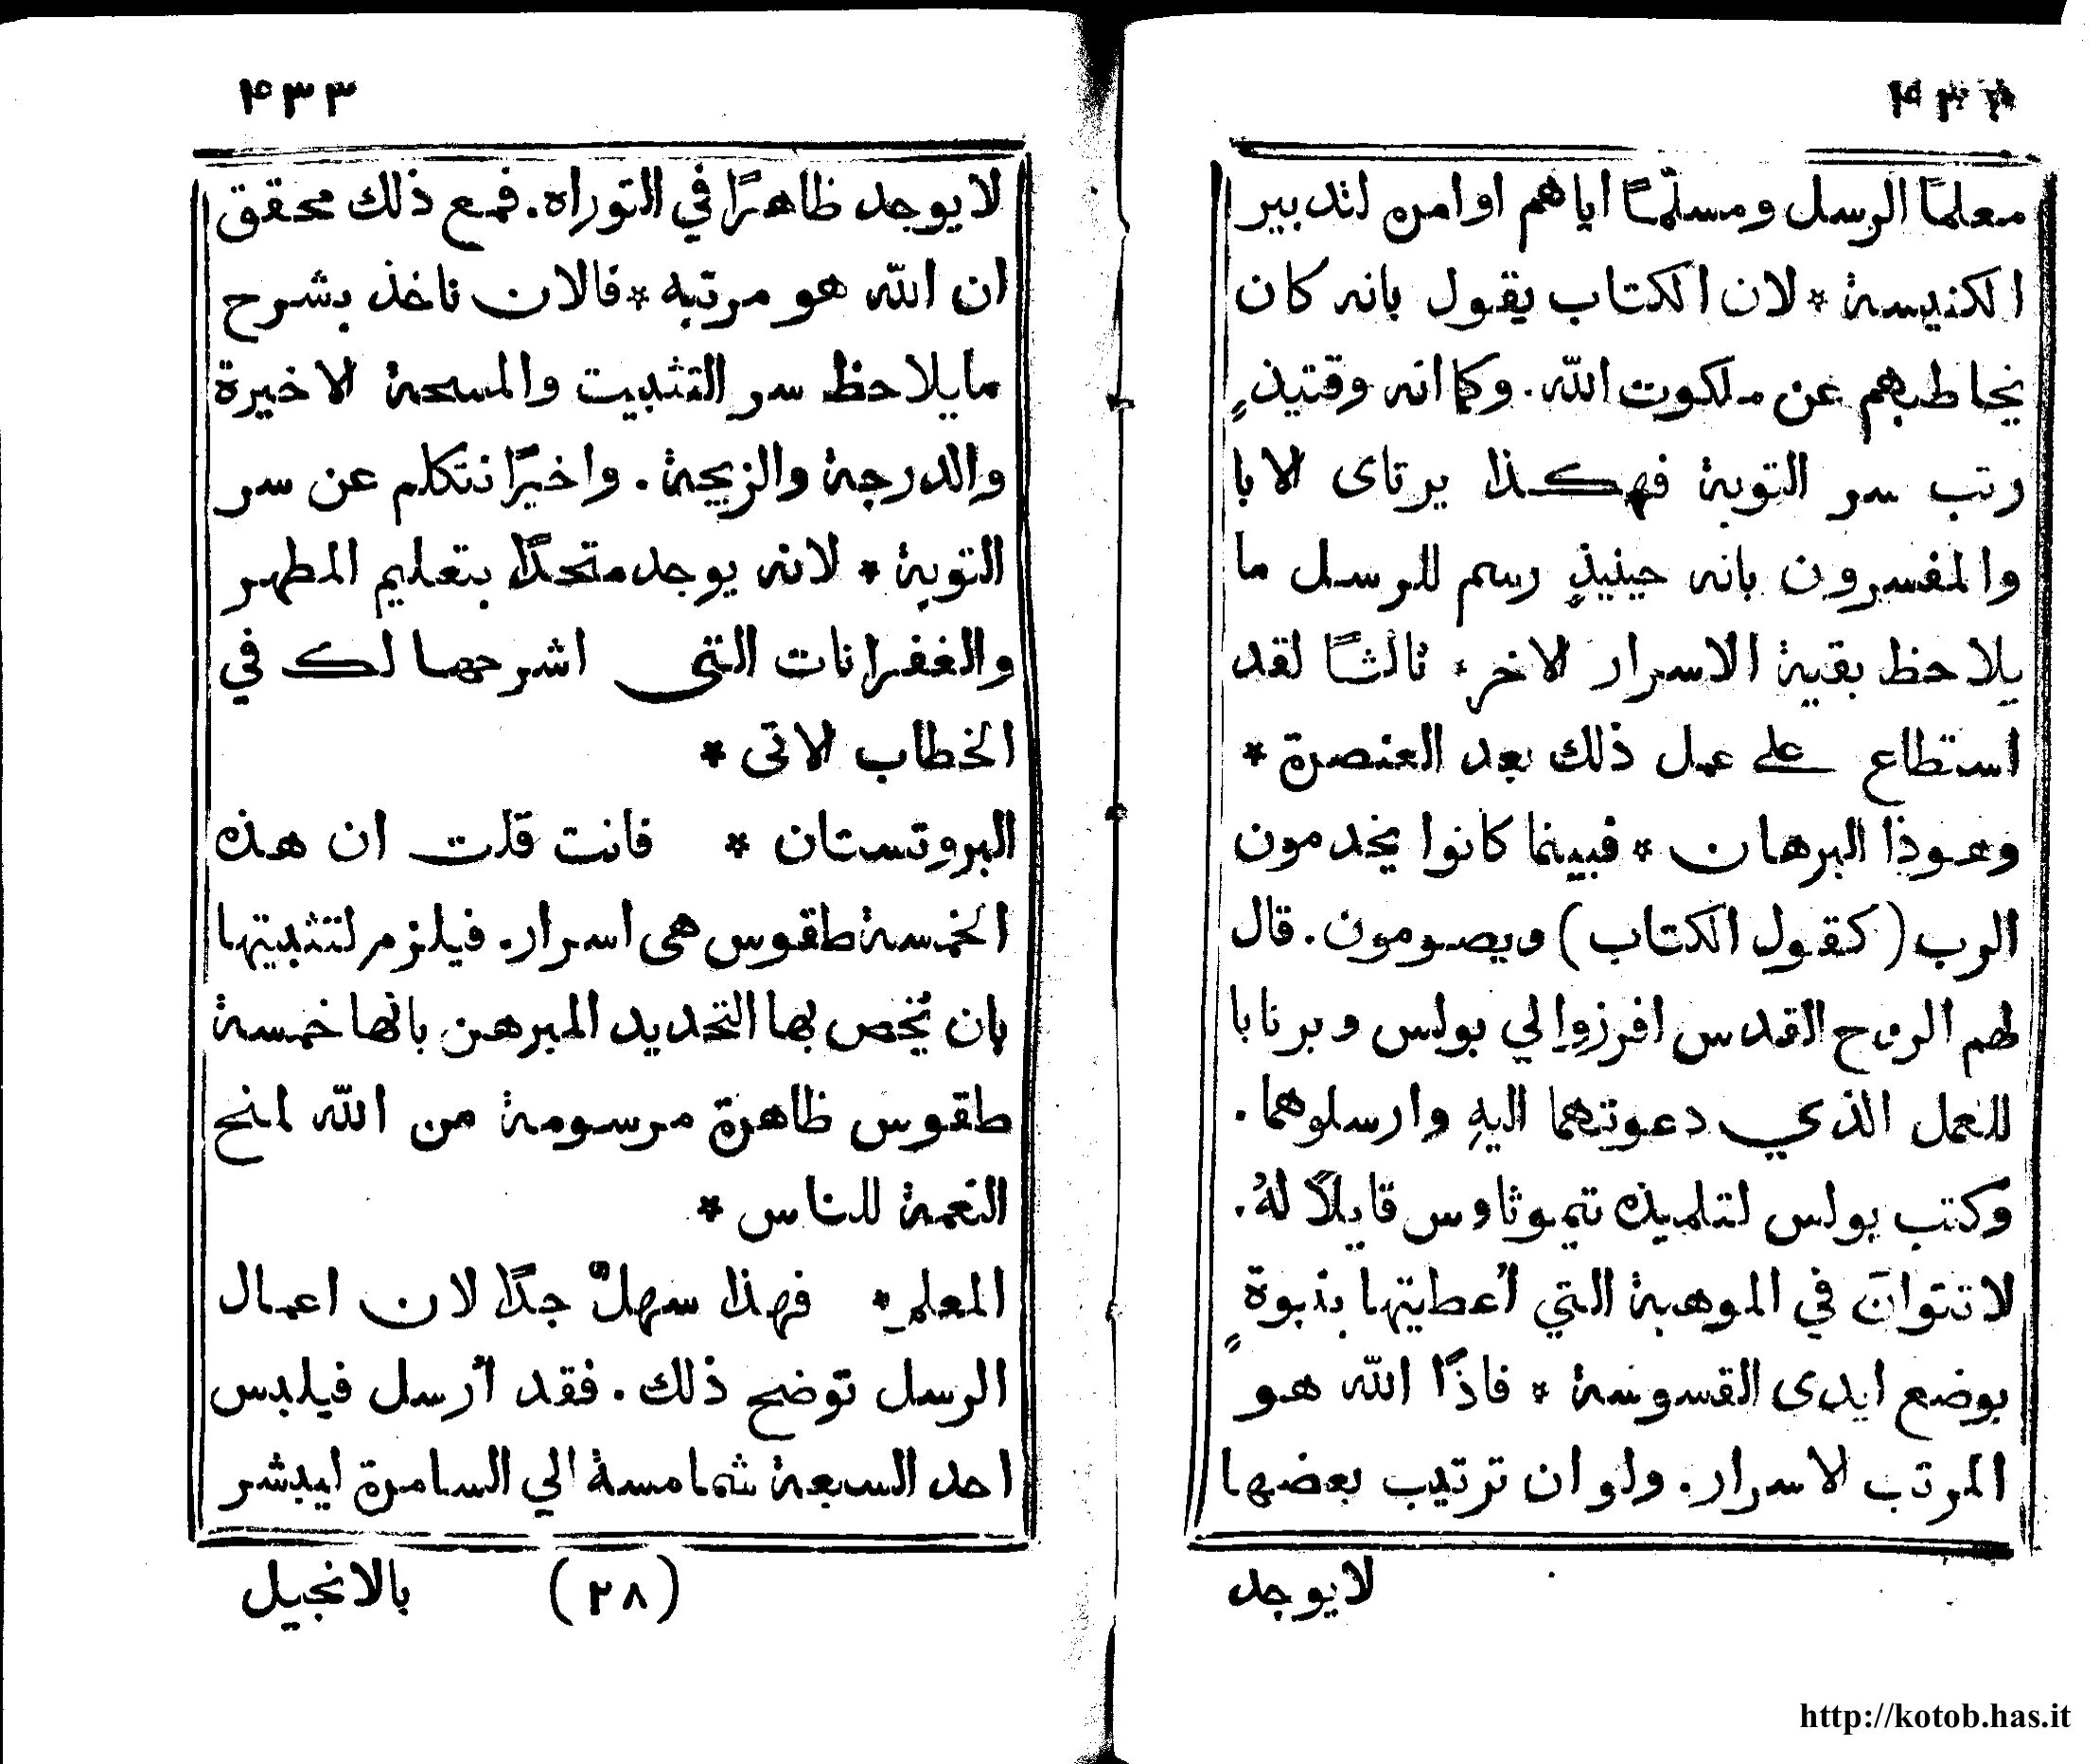 ٤٣٢
معلمًا الرسل ومسلّمًا اياهم اوامره لتدبير
الكنيسة * لان الكتاب يقول بانه كان
يخاطبهم عن ملكوت الله. وكما انه وقتيذٍ
رتب سر التوبة فهكذا يرتاى الابا
والمفسرون بانه حينيذٍ رسم للرسل ما
يلاحظ بقية الاسرار الاخر * ثالثًا لقد
استطاع على عمل ذلك بعد العنصرة *
وهوذا البرهان * فبينما كانوا يخدمون
الرب (كقول الكتاب) ويصومون. قال
لهم الروح القدس افرزوا لي بولس وبرنابا
للعمل الذي دعوتهما اليهِ وارسلوهما.
وكتب بولس لتلميذه تيموثاوس قايلًا لهُ.
لا تتوانَ في الموهبة التي اُعطيتها بنبوةٍ
بوضع ايدى القسوسة * فاذًا الله هو
المرتب الاسرار. ولو ان ترتيب بعضها
لايوجد
٤٣٣
لايوجد ظاهرًا في التوراه. فمع ذلك محقق
ان الله هو مرتبه * فالان ناخذ بشرح
مايلاحظ سر التثبيت والمسحة الاخيرة
والدرجة والزيجة. واخيرًا نتكلم عن سر
التوبة * لانه يوجد متحدًا بتعليم المطهر
والغفرانات التى اشرحها لك في
الخطاب الاتى *
البروتستان * فانت قلت ان هذه
الخمسة طقوس هى اسرار. فيلزم لتثبيتها
بان يُخص بها التحديد المبرهن بانها خمسة
طقوس ظاهرة مرسومة من الله لمنح
النعمة للناس *
المعلم * فهذا سهلٌ جدًا لان اعمال
الرسل توضح ذلك. فقد اُرسل فيلبس
احد السبعة شمامسة الي السامرة ليبشر
(٢٨) بالانجيل
http://kotob.has.it